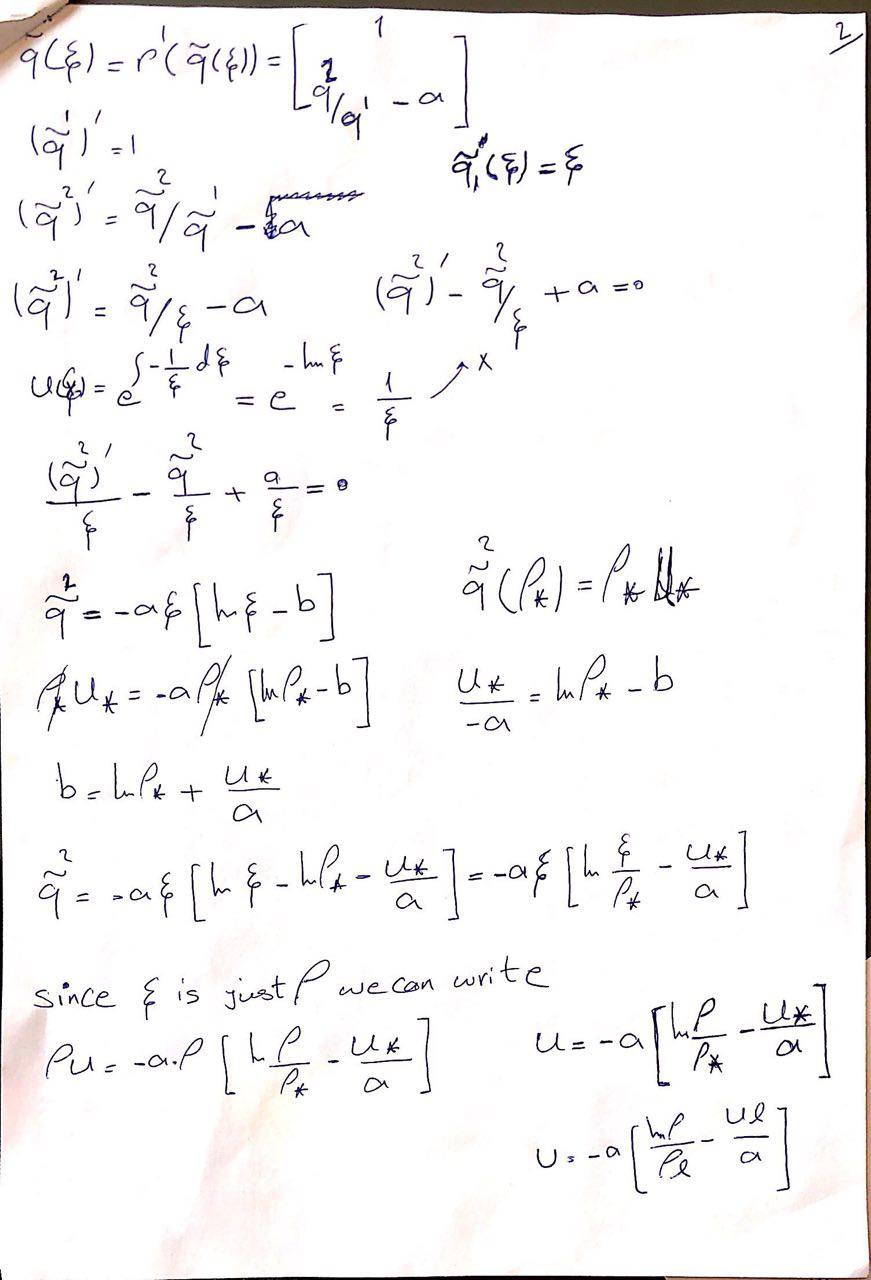 2
q̃(ξ) = r¹(q̃(ξ)) = [ 1 ; q²/q¹ - a ]
(q̃¹)' = 1
q̃₁(ξ) = ξ
(q̃²)' = q̃²/q̃¹ - a
(q̃²)' = q̃²/ξ - a    (q̃²)' - q̃²/ξ + a = 0
u(ξ) = e^{∫-1/ξ dξ} = e^{-ln ξ} = 1/ξ ↗ x
(q̃²)'/ξ - q̃²/ξ + a/ξ = 0
q̃² = -aξ [ln ξ - b]    q̃²(ρ*) = ρ* u*
ρ* u* = -a ρ* [ln ρ* - b]    u*/-a = ln ρ* - b
b = ln ρ* + u*/a
q̃² = -aξ [ln ξ - ln ρ* - u*/a] = -aξ [ln ξ/ρ* - u*/a]
since ξ is just ρ we can write
ρu = -a.ρ [ln ρ/ρ* - u*/a]    u = -a [ln ρ/ρ* - u*/a]
u = -a [ln ρ/ρℓ - uℓ/a]